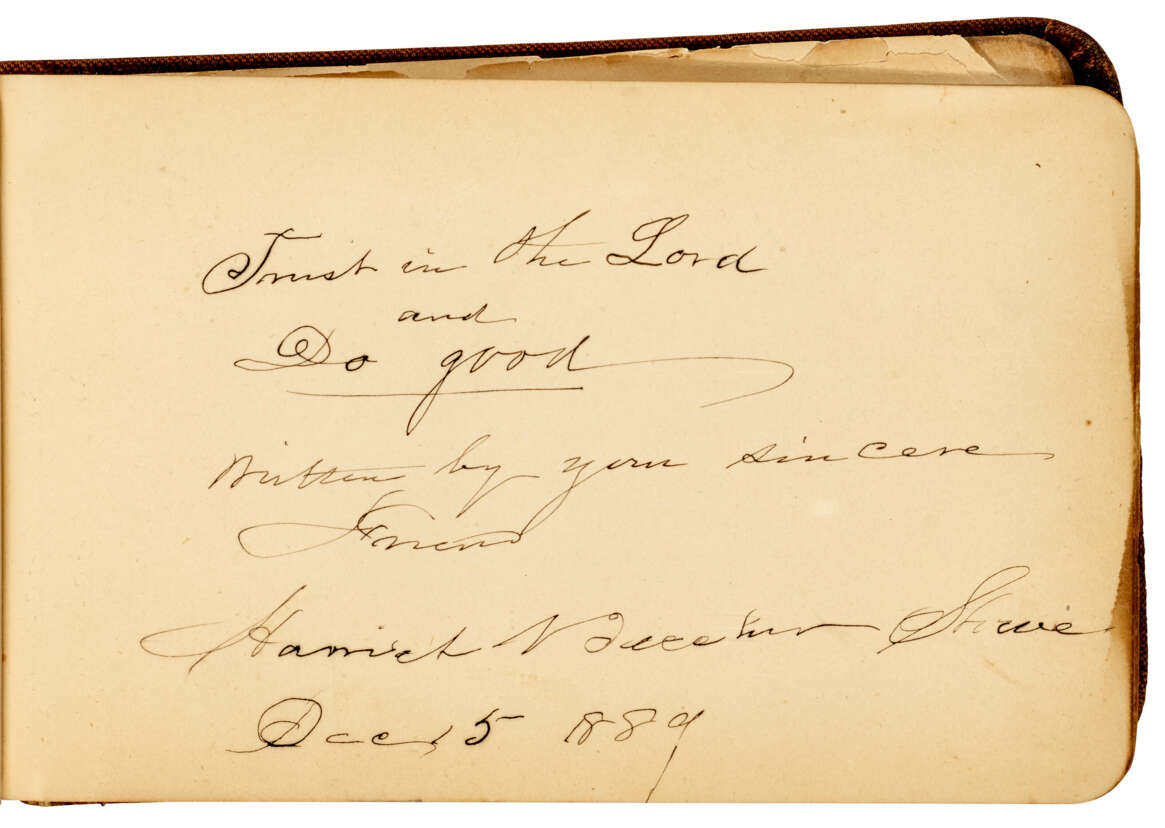 Trust in the Lord
and
Do good
written by your sincere
Friend
Harriet Beecher Stowe
Dec 5 1889